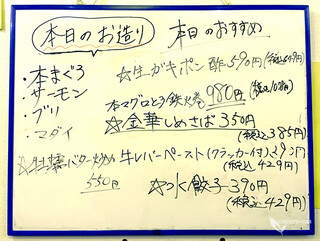 本日のお造り
・本まぐろ
・サーモン
・ブリ
・マダイ
本日のおすすめ
☆生ガキポン酢 590円(税込649円)
本マグロとろ鉄火巻 980円
☆金華しめさば 350円
(税込385円)
バター炒め
550円
牛レバーペースト(クラッカー付)
(税込429円)
☆水餃子 390円
(税込429円)